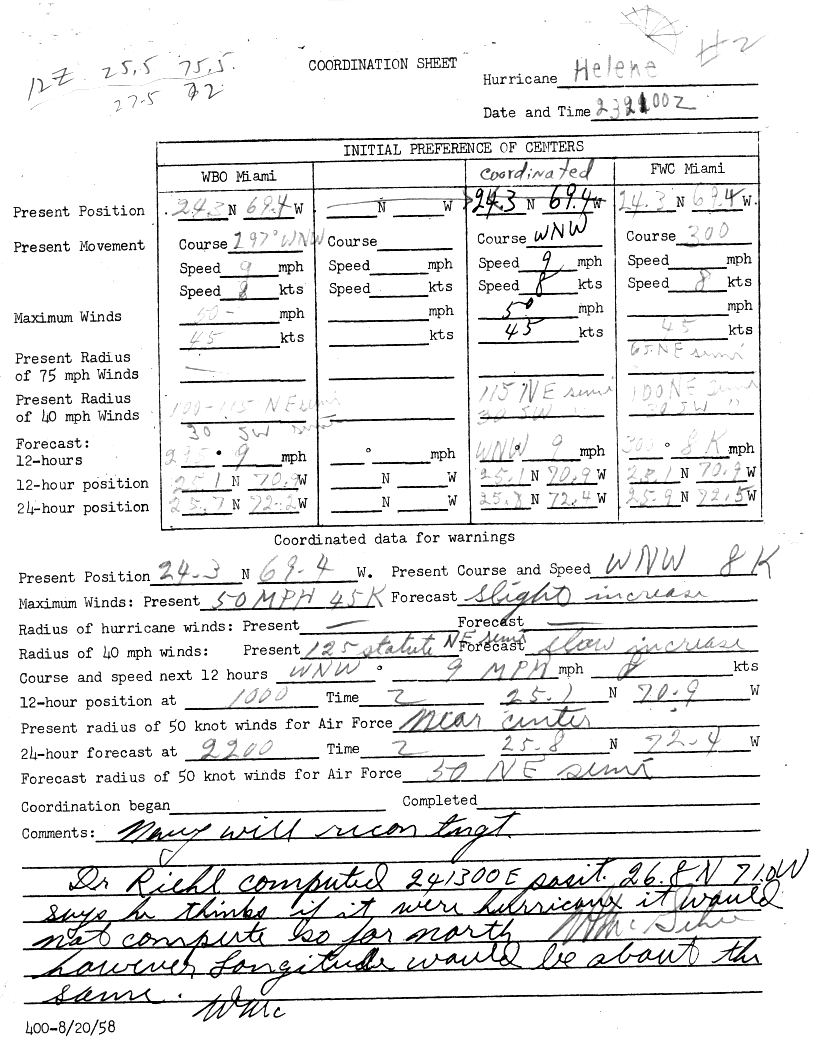 12Z 25.5 75.5
27.5 72
COORDINATION SHEET
#2
Hurricane Helene
Date and Time 232100Z
INITIAL PREFERENCE OF CENTERS
WBO Miami Coordinated FWC Miami
Present Position 24.3 N 69.4 W N W 24.3 N 69.4 W 24.3 N 69.4 W.
Present Movement Course 297° WNW Course Course WNW Course 300
Speed 9 mph Speed mph Speed 9 mph Speed mph
Speed 8 kts Speed kts Speed 8 kts Speed 8 kts
Maximum Winds 50 mph mph 50 mph mph
45 kts kts 45 kts 45 kts
Present Radius of 75 mph Winds — 65 NE semi
Present Radius 100-115 NE semi 115 NE semi 100 NE semi
of 40 mph Winds 30 SW semi 30 SW 30 SW "
Forecast:
12-hours 295 ° 9 mph ° mph WNW ° 9 mph 300 ° 8 K mph
12-hour position 25.1 N 70.9 W N W 25.1 N 70.9 W N 70.9 W
24-hour position 25.7 N 72.2 W N W 25.8 N 72.4 W 25.9 N 72.5 W
Coordinated data for warnings
Present Position 24.3 N 69.4 W. Present Course and Speed WNW 8 K
Maximum Winds: Present 50 MPH 45 K Forecast slight increase
Radius of hurricane winds: Present — Forecast —
Radius of 40 mph winds: Present 125 statute NE semi Forecast slow increase
Course and speed next 12 hours WNW ° 9 MPH mph 8 kts
12-hour position at 1000 Time Z 25.1 N 70.9 W
Present radius of 50 knot winds for Air Force Near center
24-hour forecast at 2200 Time Z 25.8 N 72.4 W
Forecast radius of 50 knot winds for Air Force 50 NE semi
Coordination began Completed
Comments: Navy will recon tngt.
Dr Riehl computed 241300E posit. 26.8 N 71.0W
says he thinks if it were hurricane it would
not compute so far north
however Longitude would be about the
same. WMc
400-8/20/58